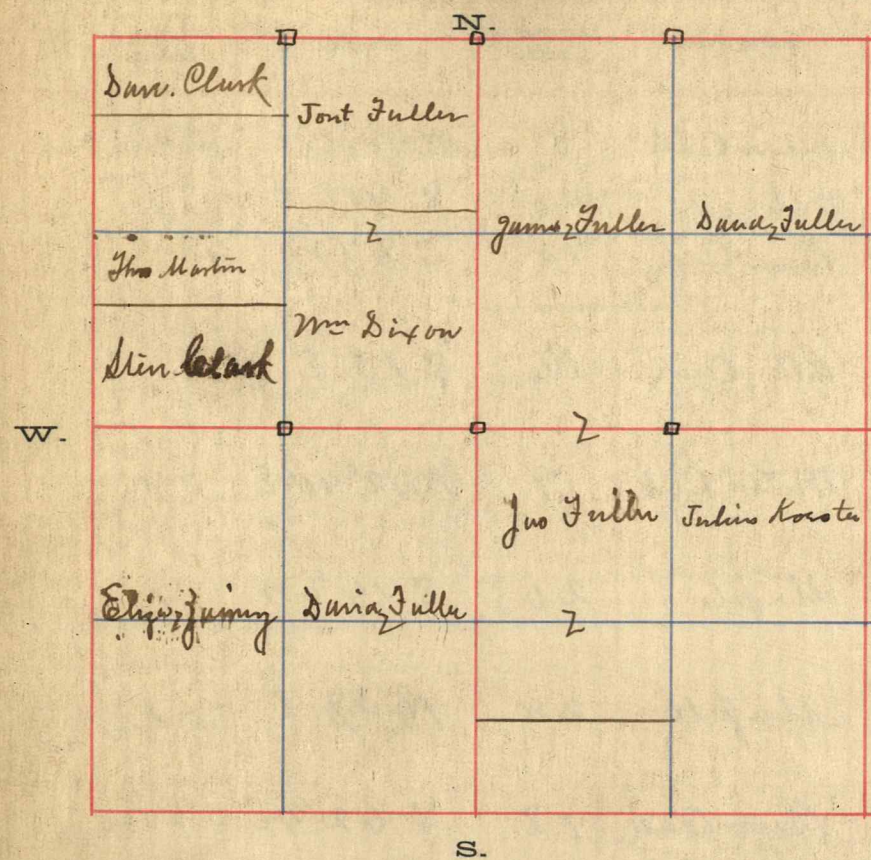 N.
Dan. Clark
Jont Fuller
James Fuller
David Fuller
Thos Martin
Wm Dixon
Clark
W.
Jno Fuller
Julius Koester
David Fuller
S.